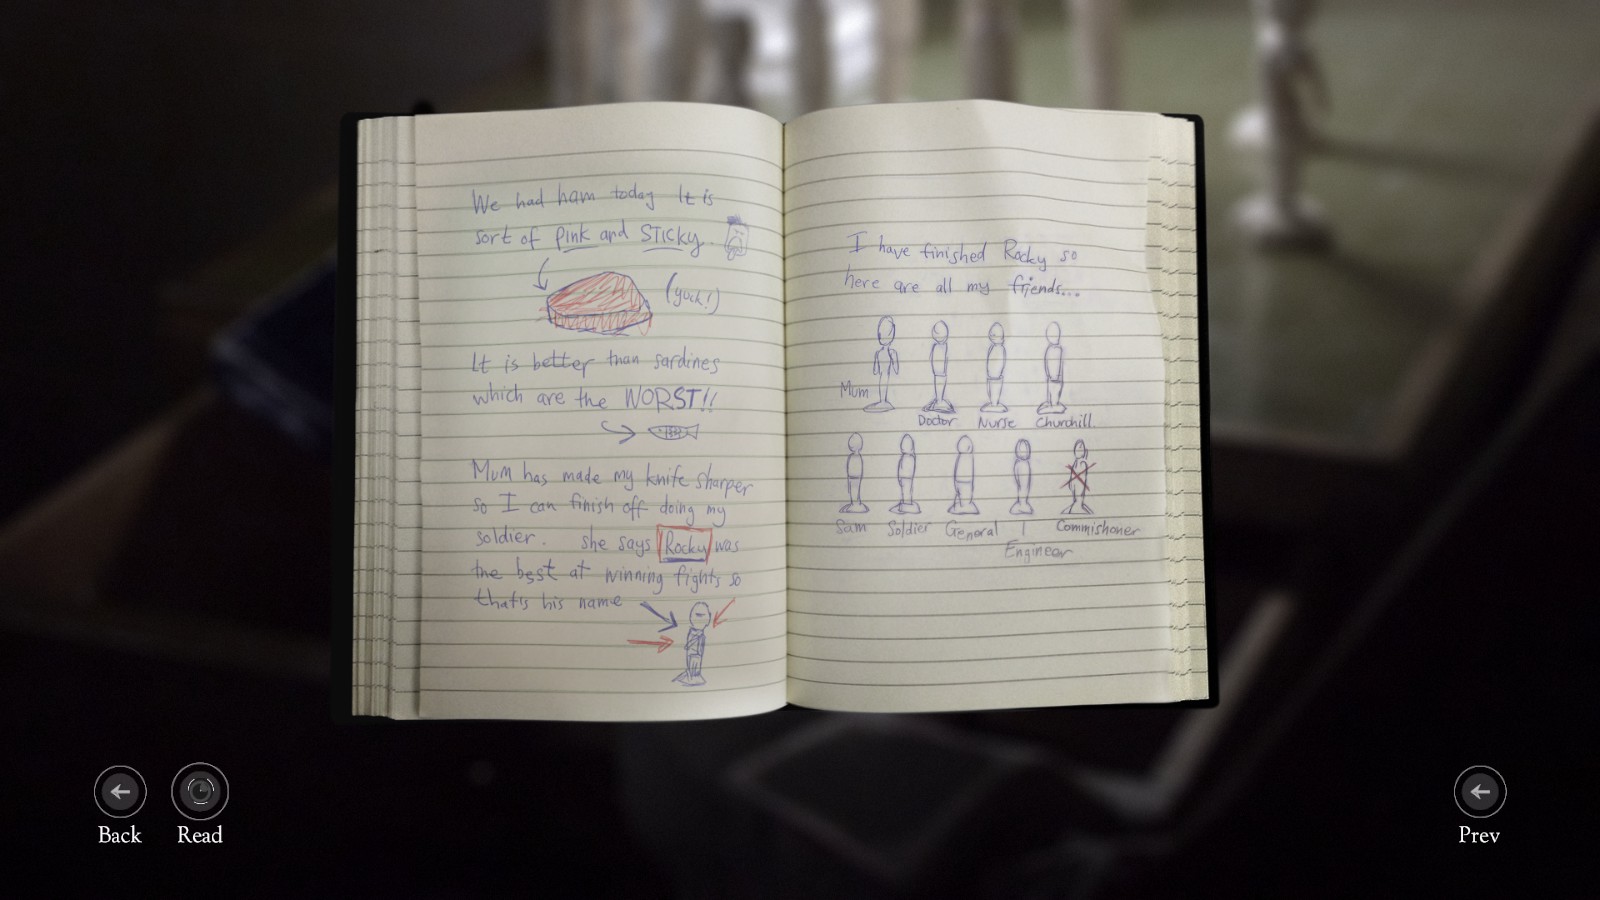 We had ham today It is
sort of Pink and STICKY.
(yuck!)
It is better than sardines
which are the WORST!!
Mum has made my knife sharper
so I can finish off doing my
soldier. she says Rocky was
the best at winning fights so
that's his name
I have finished Rocky so
here are all my friends...
Mum
Doctor Nurse Churchill.
Sam Soldier General Commishoner
Engineer
Back
Read
Prev